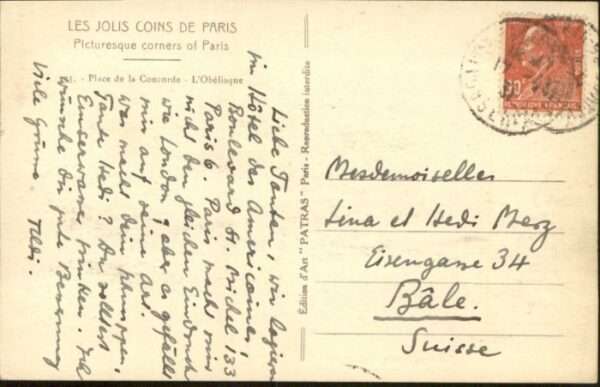 LES JOLIS COINS DE PARIS
Picturesque corners of Paris
Place de la Concorde - L'Obélisque
Liebe Tanten, wir logieren
im Hôtel des Américains,
Boulevard St. Michel 133
Paris 6. Paris macht mir
nicht den gleichen Eindruck
wie London, aber es gefällt
mir auf seine Art.
was macht dein
Tante Hedi? Du solltest
Emserwasser trinken. Ich
wünsche dir gute Besserung
Viele Grüsse
Édition d'Art "PATRAS" Paris - Reproduction interdite
Mesdemoiselles
Lina et Hedi Merz
Eisengasse 34
Bâle.
Suisse